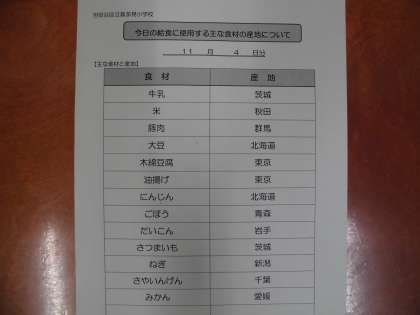 今日の給食に使用する主な食材の産地について
11 月 4 日分
【主な食材と産地】
食 材 産 地
牛乳 茨城
米 秋田
豚肉 群馬
大豆 北海道
木綿豆腐 東京
油揚げ 東京
にんじん 北海道
ごぼう 青森
だいこん 岩手
さつまいも 茨城
ねぎ 新潟
さやいんげん 千葉
みかん 愛媛